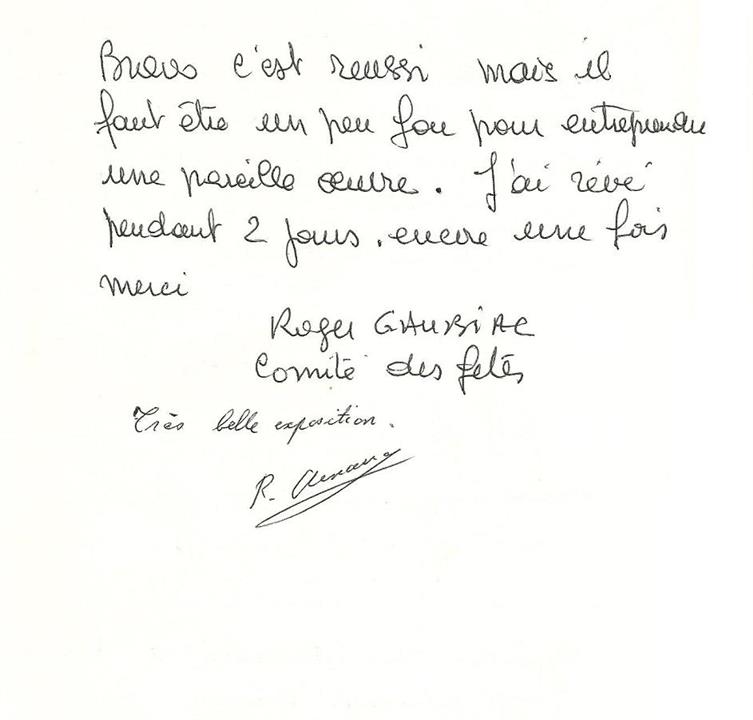 Bravo c'est reussi mais il
faut être un peu fou pour entreprendre
une pareille œuvre. J'ai rêvé
pendant 2 jours. encore une fois
merci
Roger GAUBIAC
Comité des fetes
Très belle exposition.
R.